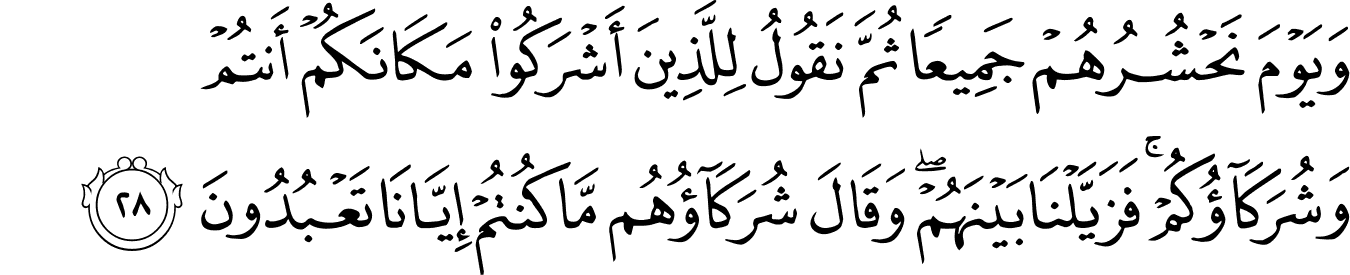 وَيَوْمَ نَحْشُرُهُمْ جَمِيعًا ثُمَّ نَقُولُ لِلَّذِينَ أَشْرَكُوا۟ مَكَانَكُمْ أَنتُمْ
وَشُرَكَآؤُكُمْ ۚ فَزَيَّلْنَا بَيْنَهُمْ ۖ وَقَالَ شُرَكَآؤُهُم مَّا كُنتُمْ إِيَّانَا تَعْبُدُونَ ٢٨